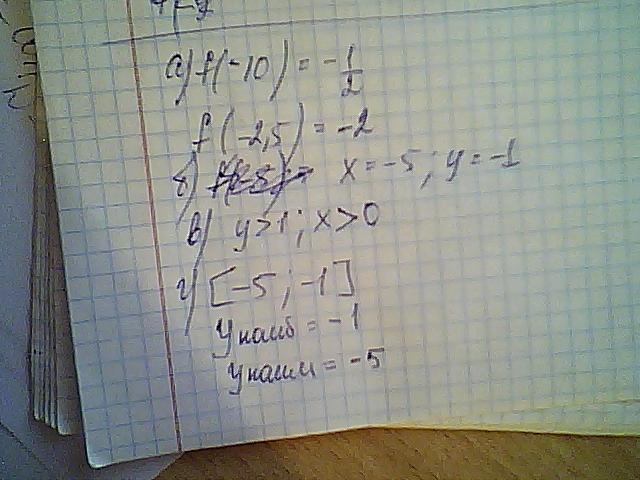 а) f(-10) = -1/2
f(-2,5) = -2
б) x = -5; y = -1
в) y>1; x>0
г) [-5; -1]
y наиб = -1
y наим = -5